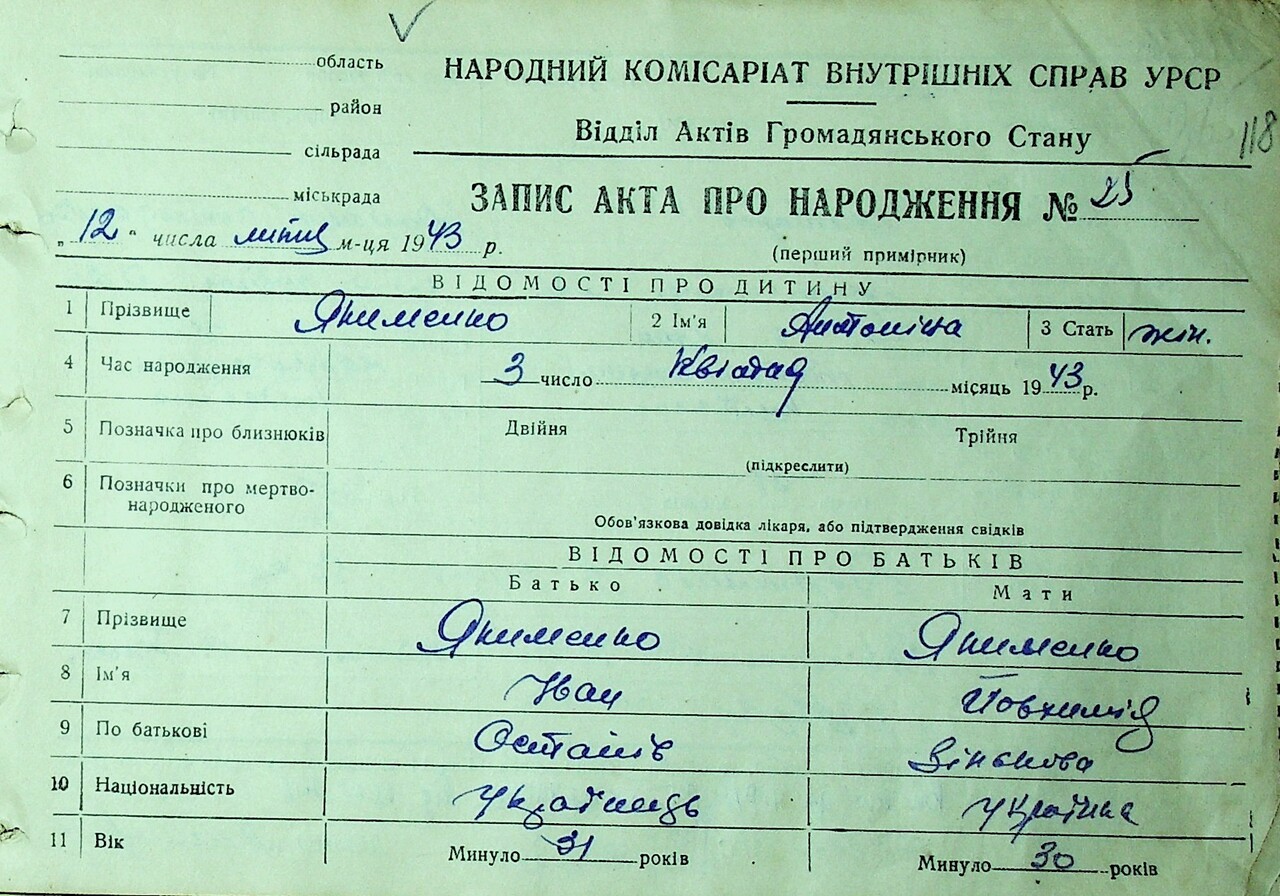 область
район
сільрада
міськрада
НАРОДНИЙ КОМІСАРІАТ ВНУТРІШНІХ СПРАВ УРСР
Відділ Актів Громадянського Стану
118
ЗАПИС АКТА ПРО НАРОДЖЕННЯ № 25
„12“ числа липня м-ця 1943 р.
(перший примірник)
ВІДОМОСТІ ПРО ДИТИНУ
1 Прізвище Якименко 2 Ім'я Антоніна 3 Стать жін.
4 Час народження 3 число Квітня місяць 1943 р.
5 Позначка про близнюків Двійня Трійня
(підкреслити)
6 Позначки про мертво-
народженого
Обов'язкова довідка лікаря, або підтвердження свідків
ВІДОМОСТІ ПРО БАТЬКІВ
Батько Мати
7 Прізвище Якименко Якименко
8 Ім'я Іван
9 По батькові
10 Національність Українець Україинка
11 Вік Минуло 31 років Минуло 30 років